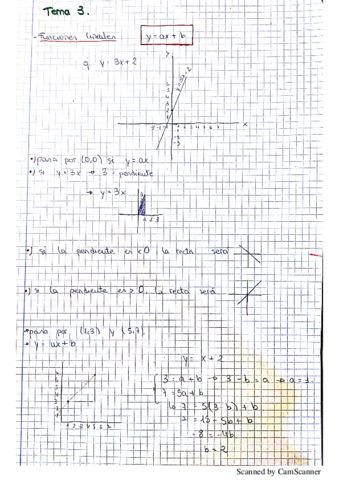 Tema 3.
- Funciones lineales y = ax + b
y = 3x + 2
y
x
•) pasa por (0,0) si y = ax
•) si y = 3x → 3 = pendiente
→ y = 3x
•) si la pendiente es < 0 la recta será
•) si la pendiente es > 0, la recta será
→ pasa por (1,3) y (5,7)
→ y = ax + b
y = x + 2
3 = a + b → 3 - b = a → a = 1.
7 = 5a + b
↳ 7 = 5(3 - b) + b
7 = 15 - 5b + b
-8 = -4b
b = 2
Scanned by CamScanner